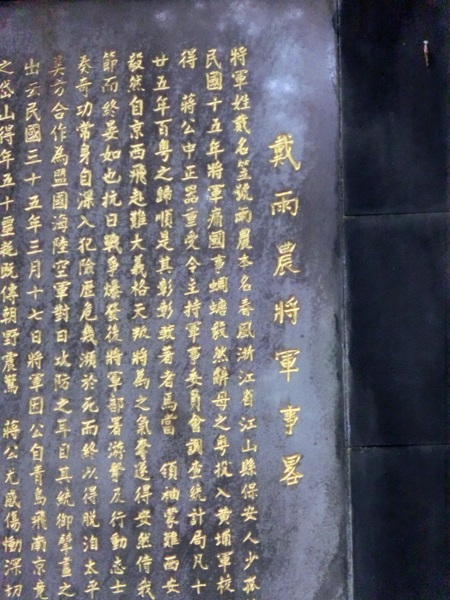 戴雨農將軍事畧
將軍姓戴名笠號雨農本名春風浙江省江山縣保安人少孤
民國十五年將軍痛國事蜩螗毅然辭母之粵投入黃埔軍校
得 蔣公中正器重受令主持軍事委員會調查統計局凡十
廿五年百粵之歸順是其彰彰較著者焉當 領袖蒙難西安
毅然自京西飛赴難大義格天叛將為之氣奪遂得安然侍我
節而終晏如也抗日戰爭爆發後將軍部署游擊及行動志士
奏奇功常身自深入犯險歷危幾瀕於死而終以得脫洎太平
美方合作為盟國海陸空軍對日攻防之耳目其統御擘畫之
出 民國三十五年三月十七日將軍因公自青島飛南京竟
之岱山得年五十噩耗既傳朝野震驚 蔣公尤感傷慟深切